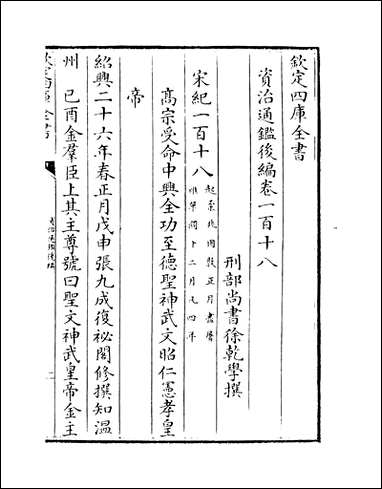 欽定四庫全書
資治通鑑後編卷一百十八
刑部尚書徐乾學撰
宋紀一百十八
高宗受命中興全功至德聖神武文昭仁憲孝皇
帝
紹興二十六年春正月戊申張九成復祕閣修撰知溫
州　己酉金羣臣上其主尊號曰聖文神武皇帝金主